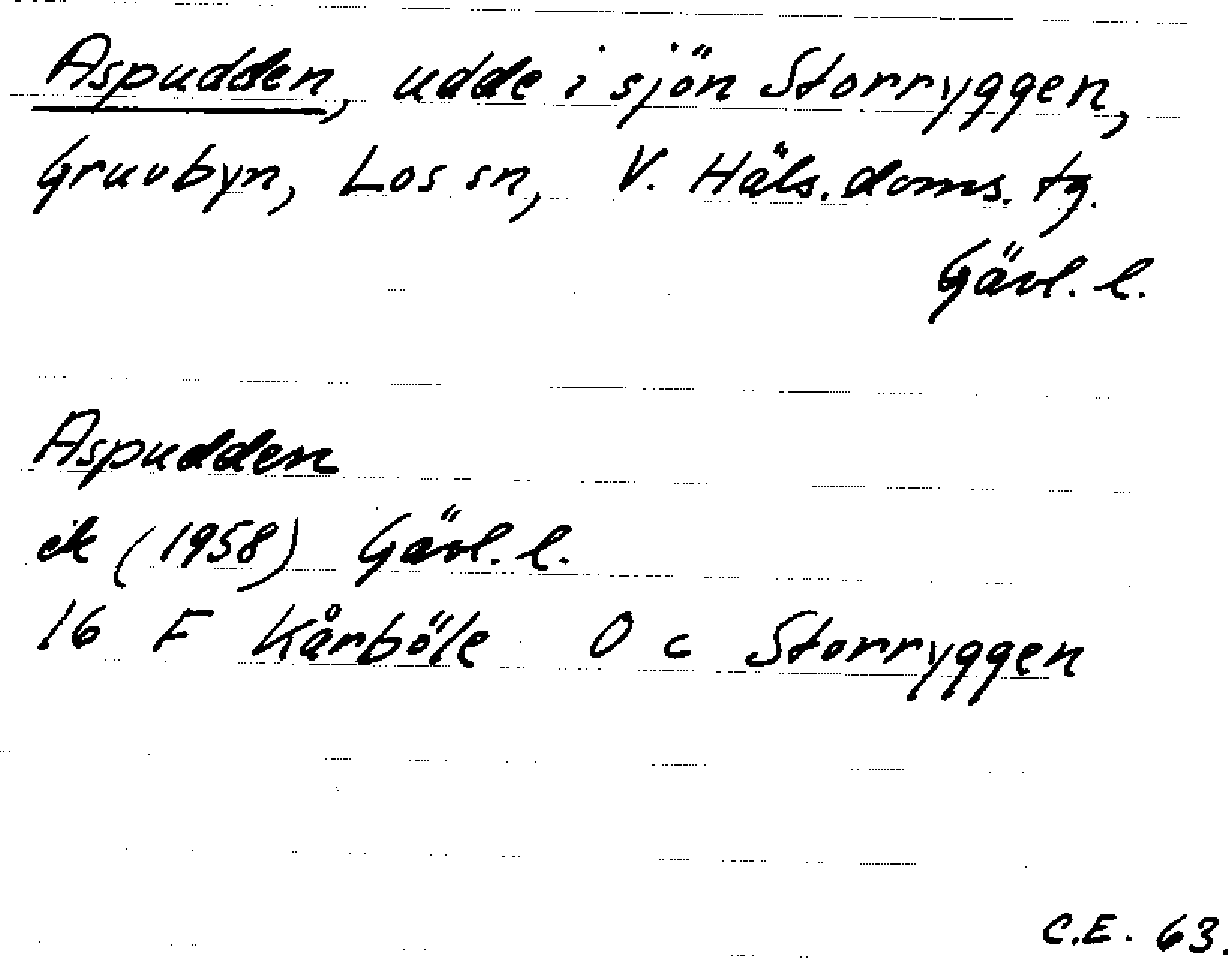 Aspudden, udde i sjön Storryggen,
Gruvbyn, Los sn, V. Häls. doms. tg.
Gävl. l.
Aspudden
ek (1958) Gävl. l.
16 F Kårböle 0 c Storryggen
C.E. 63.